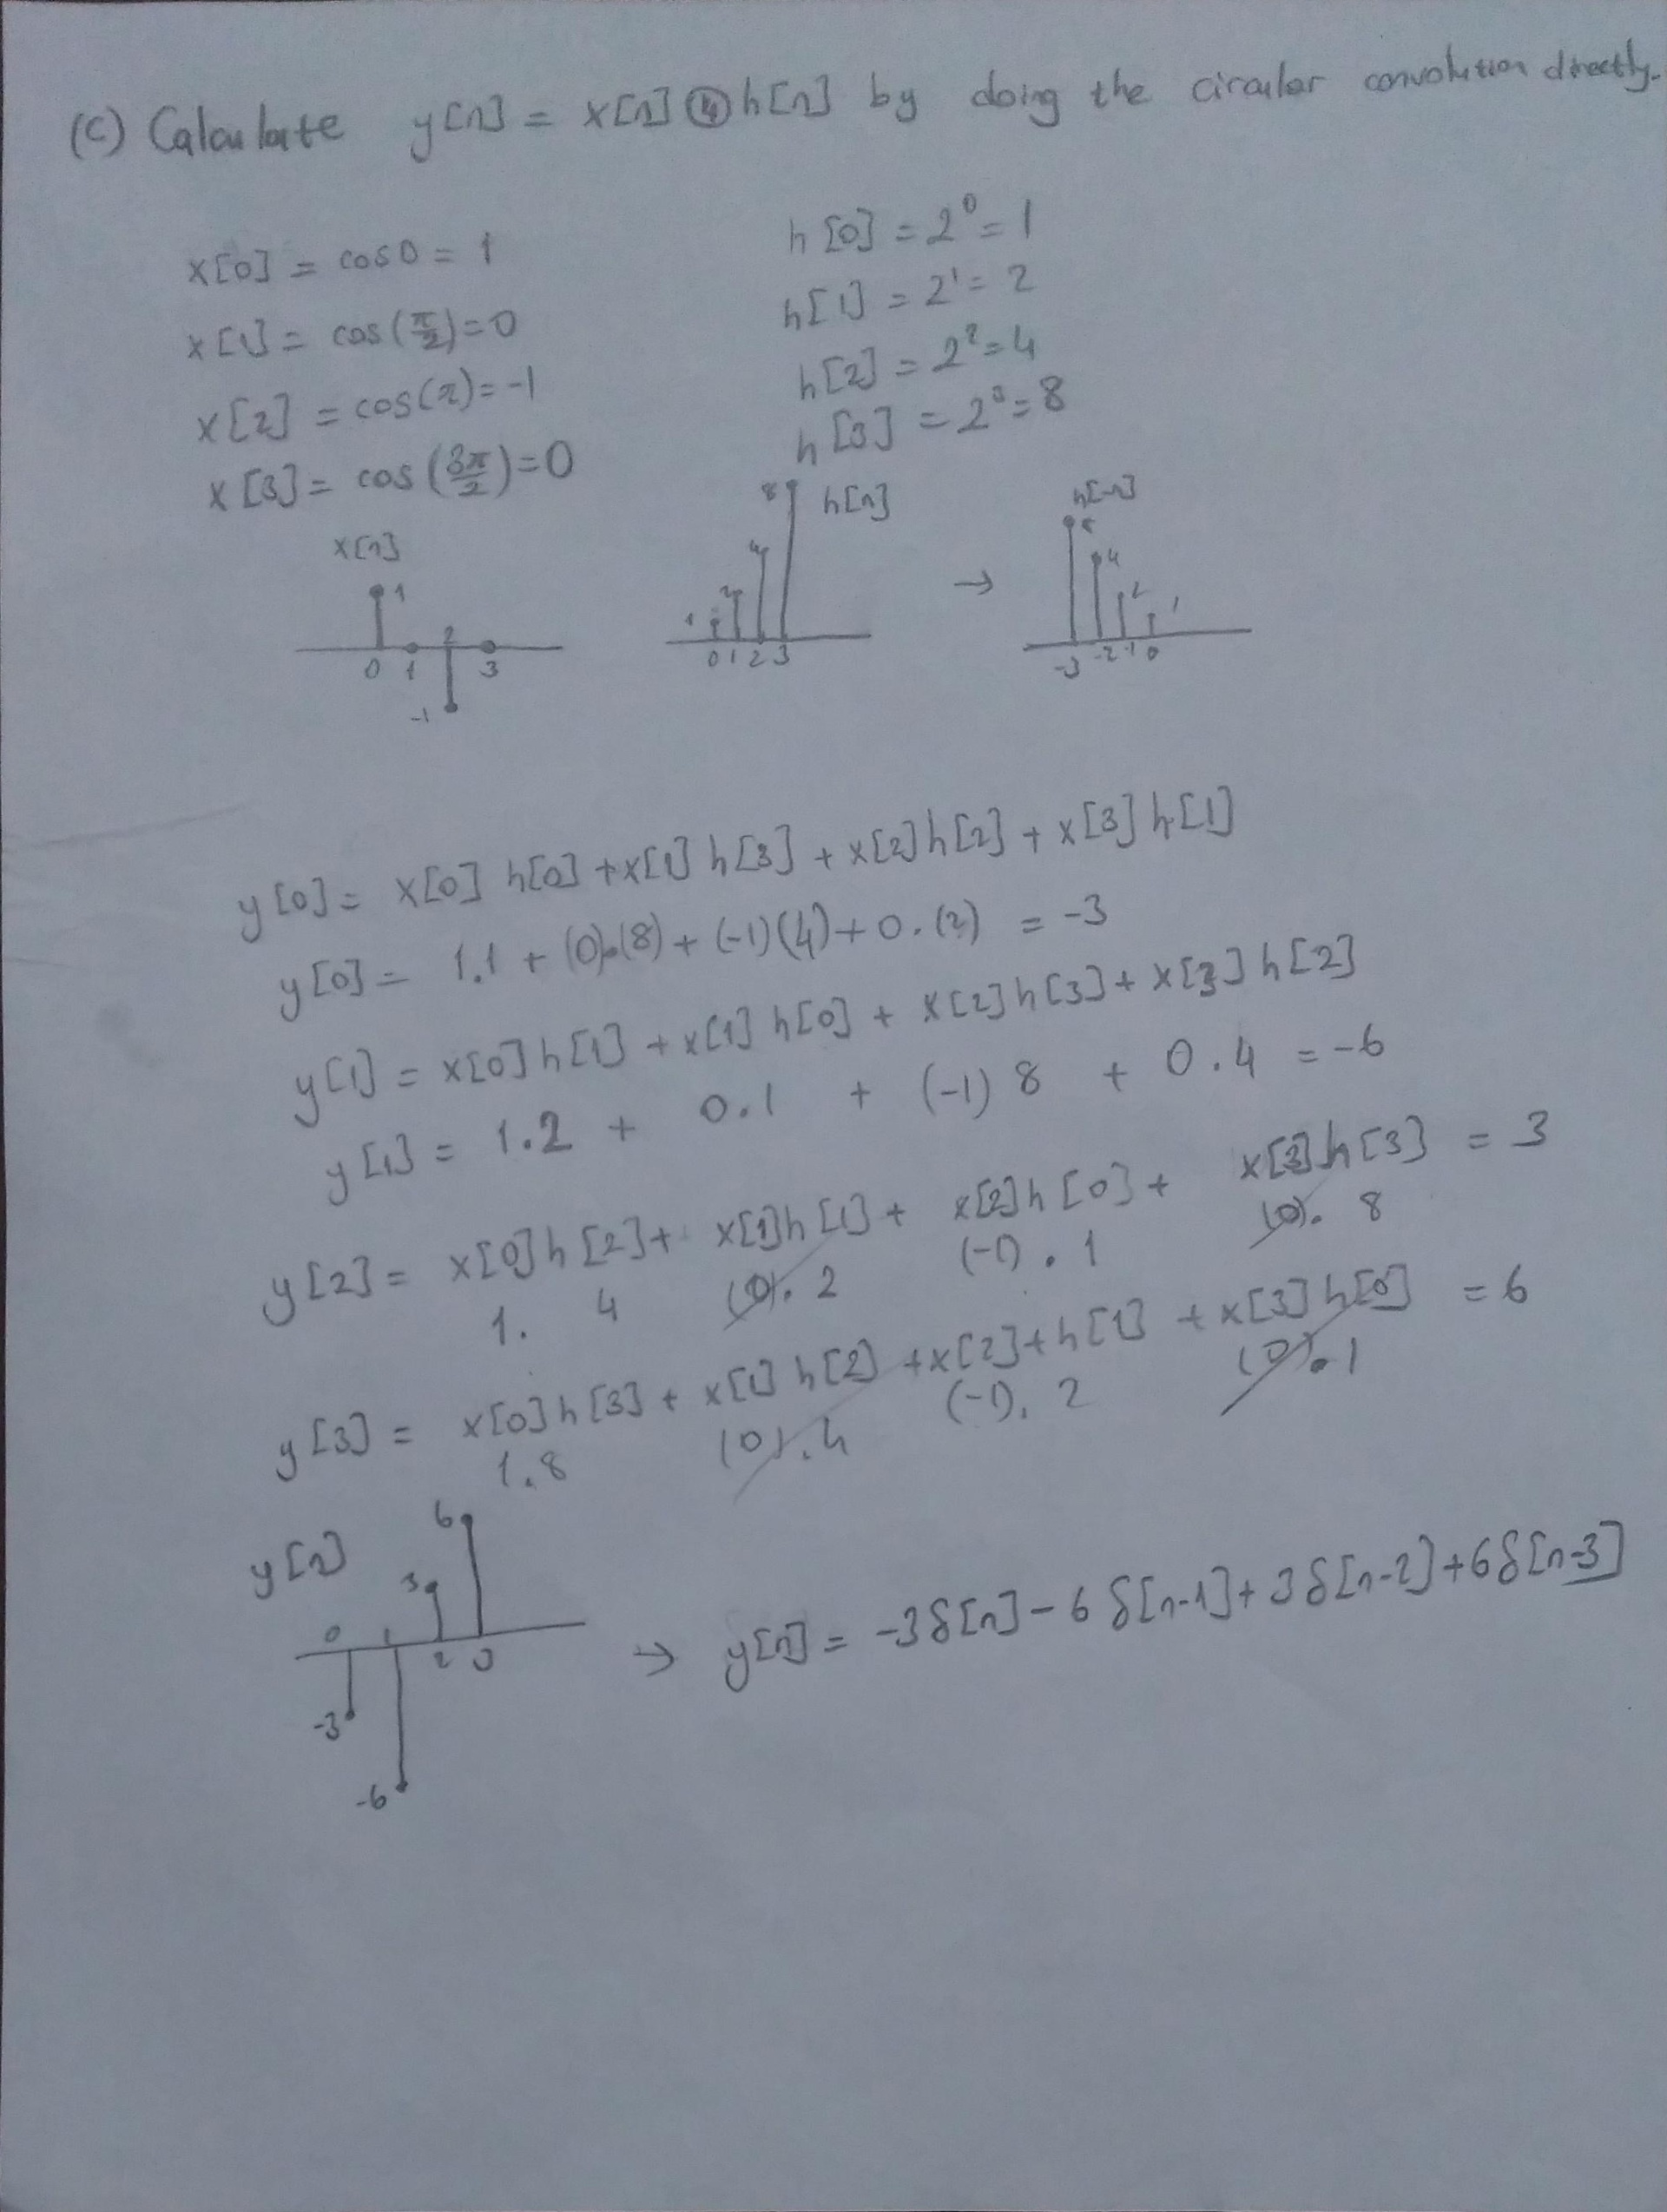 (c) Calculate y[n] = x[n] ④ h[n] by doing the circular convolution directly.
x[0] = cos 0 = 1
x[1] = cos(π/2) = 0
x[2] = cos(π) = -1
x[3] = cos(3π/2) = 0
h[0] = 2⁰ = 1
h[1] = 2¹ = 2
h[2] = 2² = 4
h[3] = 2³ = 8
x[n]
1
2
0 1 3
-1
h[n]
8
4
2
1
0 1 2 3
→
h[-n]
8
4
2
1
-3 -2 -1 0
y[0] = x[0] h[0] + x[1] h[3] + x[2] h[2] + x[3] h[1]
y[0] = 1.1 + (0).(8) + (-1)(4) + 0.(2) = -3
y[1] = x[0] h[1] + x[1] h[0] + x[2] h[3] + x[3] h[2]
y[1] = 1.2 + 0.1 + (-1) 8 + 0.4 = -6
y[2] = x[0] h[2] + x[1] h[1] + x[2] h[0] + x[3] h[3] = 3
1. 4 (0). 2 (-1). 1 (0). 8
y[3] = x[0] h[3] + x[1] h[2] + x[2] + h[1] + x[3] h[0] = 6
1.8 (0).4 (-1). 2 (0).1
y[n]
6
3
0 1
2 3
-3
-6
→ y[n] = -3δ[n] - 6δ[n-1] + 3δ[n-2] + 6δ[n-3]